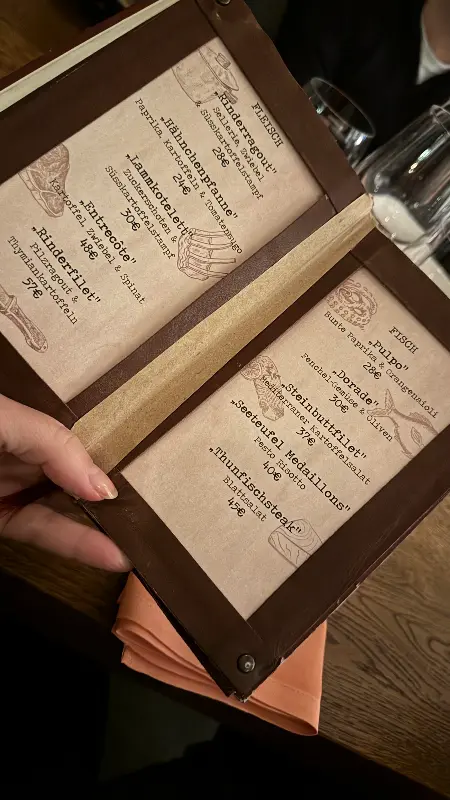 FLEISCH
„Rinderragout"
Sellerie, Zwiebel &
Süsskartoffelstampf
28€
„Hähnchenpfanne"
Paprika, Kartoffeln & Tomatensugo
24€
„Lammkotelett"
Zuckerschoten &
Süsskartoffelstampf
36€
„Entrecôte"
Kartoffel, Zwiebel & Spinat
48€
„Rinderfilet"
Pilzragout &
Thymiankartoffeln
57€
FISCH
„Pulpo"
Bunte Paprika & Orangenaioli
28€
„Dorade"
Fenchel-Gemüse & Oliven
30€
„Steinbuttfilet"
Mediterraner Kartoffelsalat
37€
„Seeteufel Medaillons"
Pesto Risotto
40€
„Thunfischsteak"
Blattsalat
45€